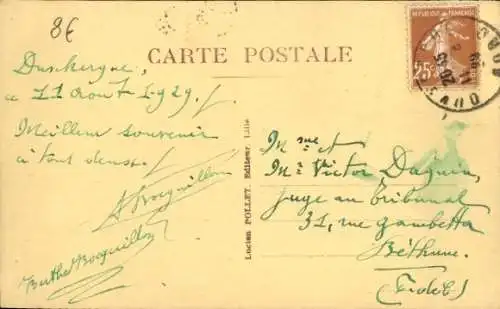 8€
CARTE POSTALE
RÉPUBLIQUE FRANÇAISE
25c
Dunkerque,
ce 11 Août 1929.
Meilleur souvenir
à tout deux.
A Bocquillon
Berthe Bocquillon
Lucien POLLET, Editeur, Lille
Mme et
Mr Victor Daguin
juge au tribunal
31, rue gambetta
Béthune.
(P.de.C)